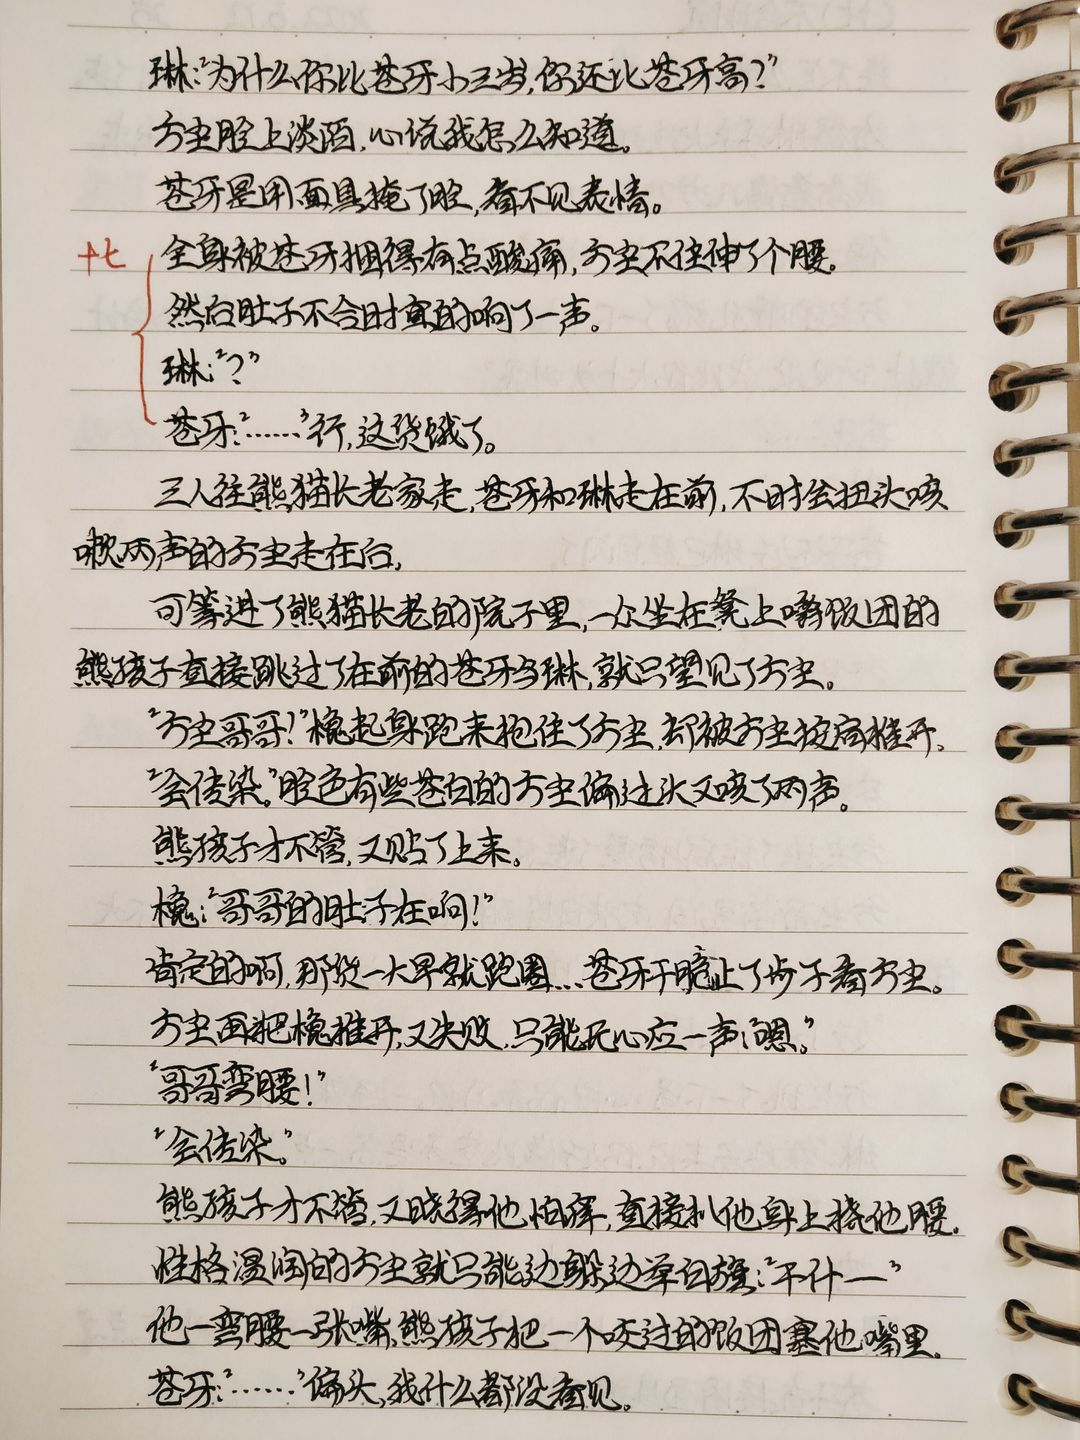 琳:“为什么你比苍牙小三岁,你还比苍牙高?”
方虫脸上淡陌,心说我怎么知道。
苍牙是用面具掩了脸,看不见表情。
十七
全身被苍牙捆得有点酸痛,方虫不住伸了个腰。
然后肚子不合时宜的响了一声。
琳:“?”
苍牙:“……”行,这货饿了。
三人往熊猫长老家走,苍牙和琳走在前,不时会扭头咳
嗽两声的方虫走在后,
可等进了熊猫长老的院子里,一众坐在凳上嚼饭团的
熊孩子直接跳过了在前的苍牙与琳,就只望见了方虫。
“方虫哥哥!”槐起身跑来抱住了方虫,却被方虫按肩推开。
“会传染。”脸色有些苍白的方虫偏过头又咳了两声。
熊孩子才不管,又贴了上来。
槐:“哥哥的肚子在响!”
肯定的啊,那货一大早就跑圈…苍牙干脆止了步子看方虫。
方虫再把槐推开,又失败,只能无心应一声:“嗯。”
“哥哥弯腰!”
“会传染。”
熊孩子才不管,又晓得他怕痒,直接扒他身上挠他腰。
性格温润的方虫就只能边躲边举白旗:“干什—”
他一弯腰一张嘴,熊孩子把一个咬过的饭团塞他嘴里。
苍牙:“……”偏头,我什么都没看见。